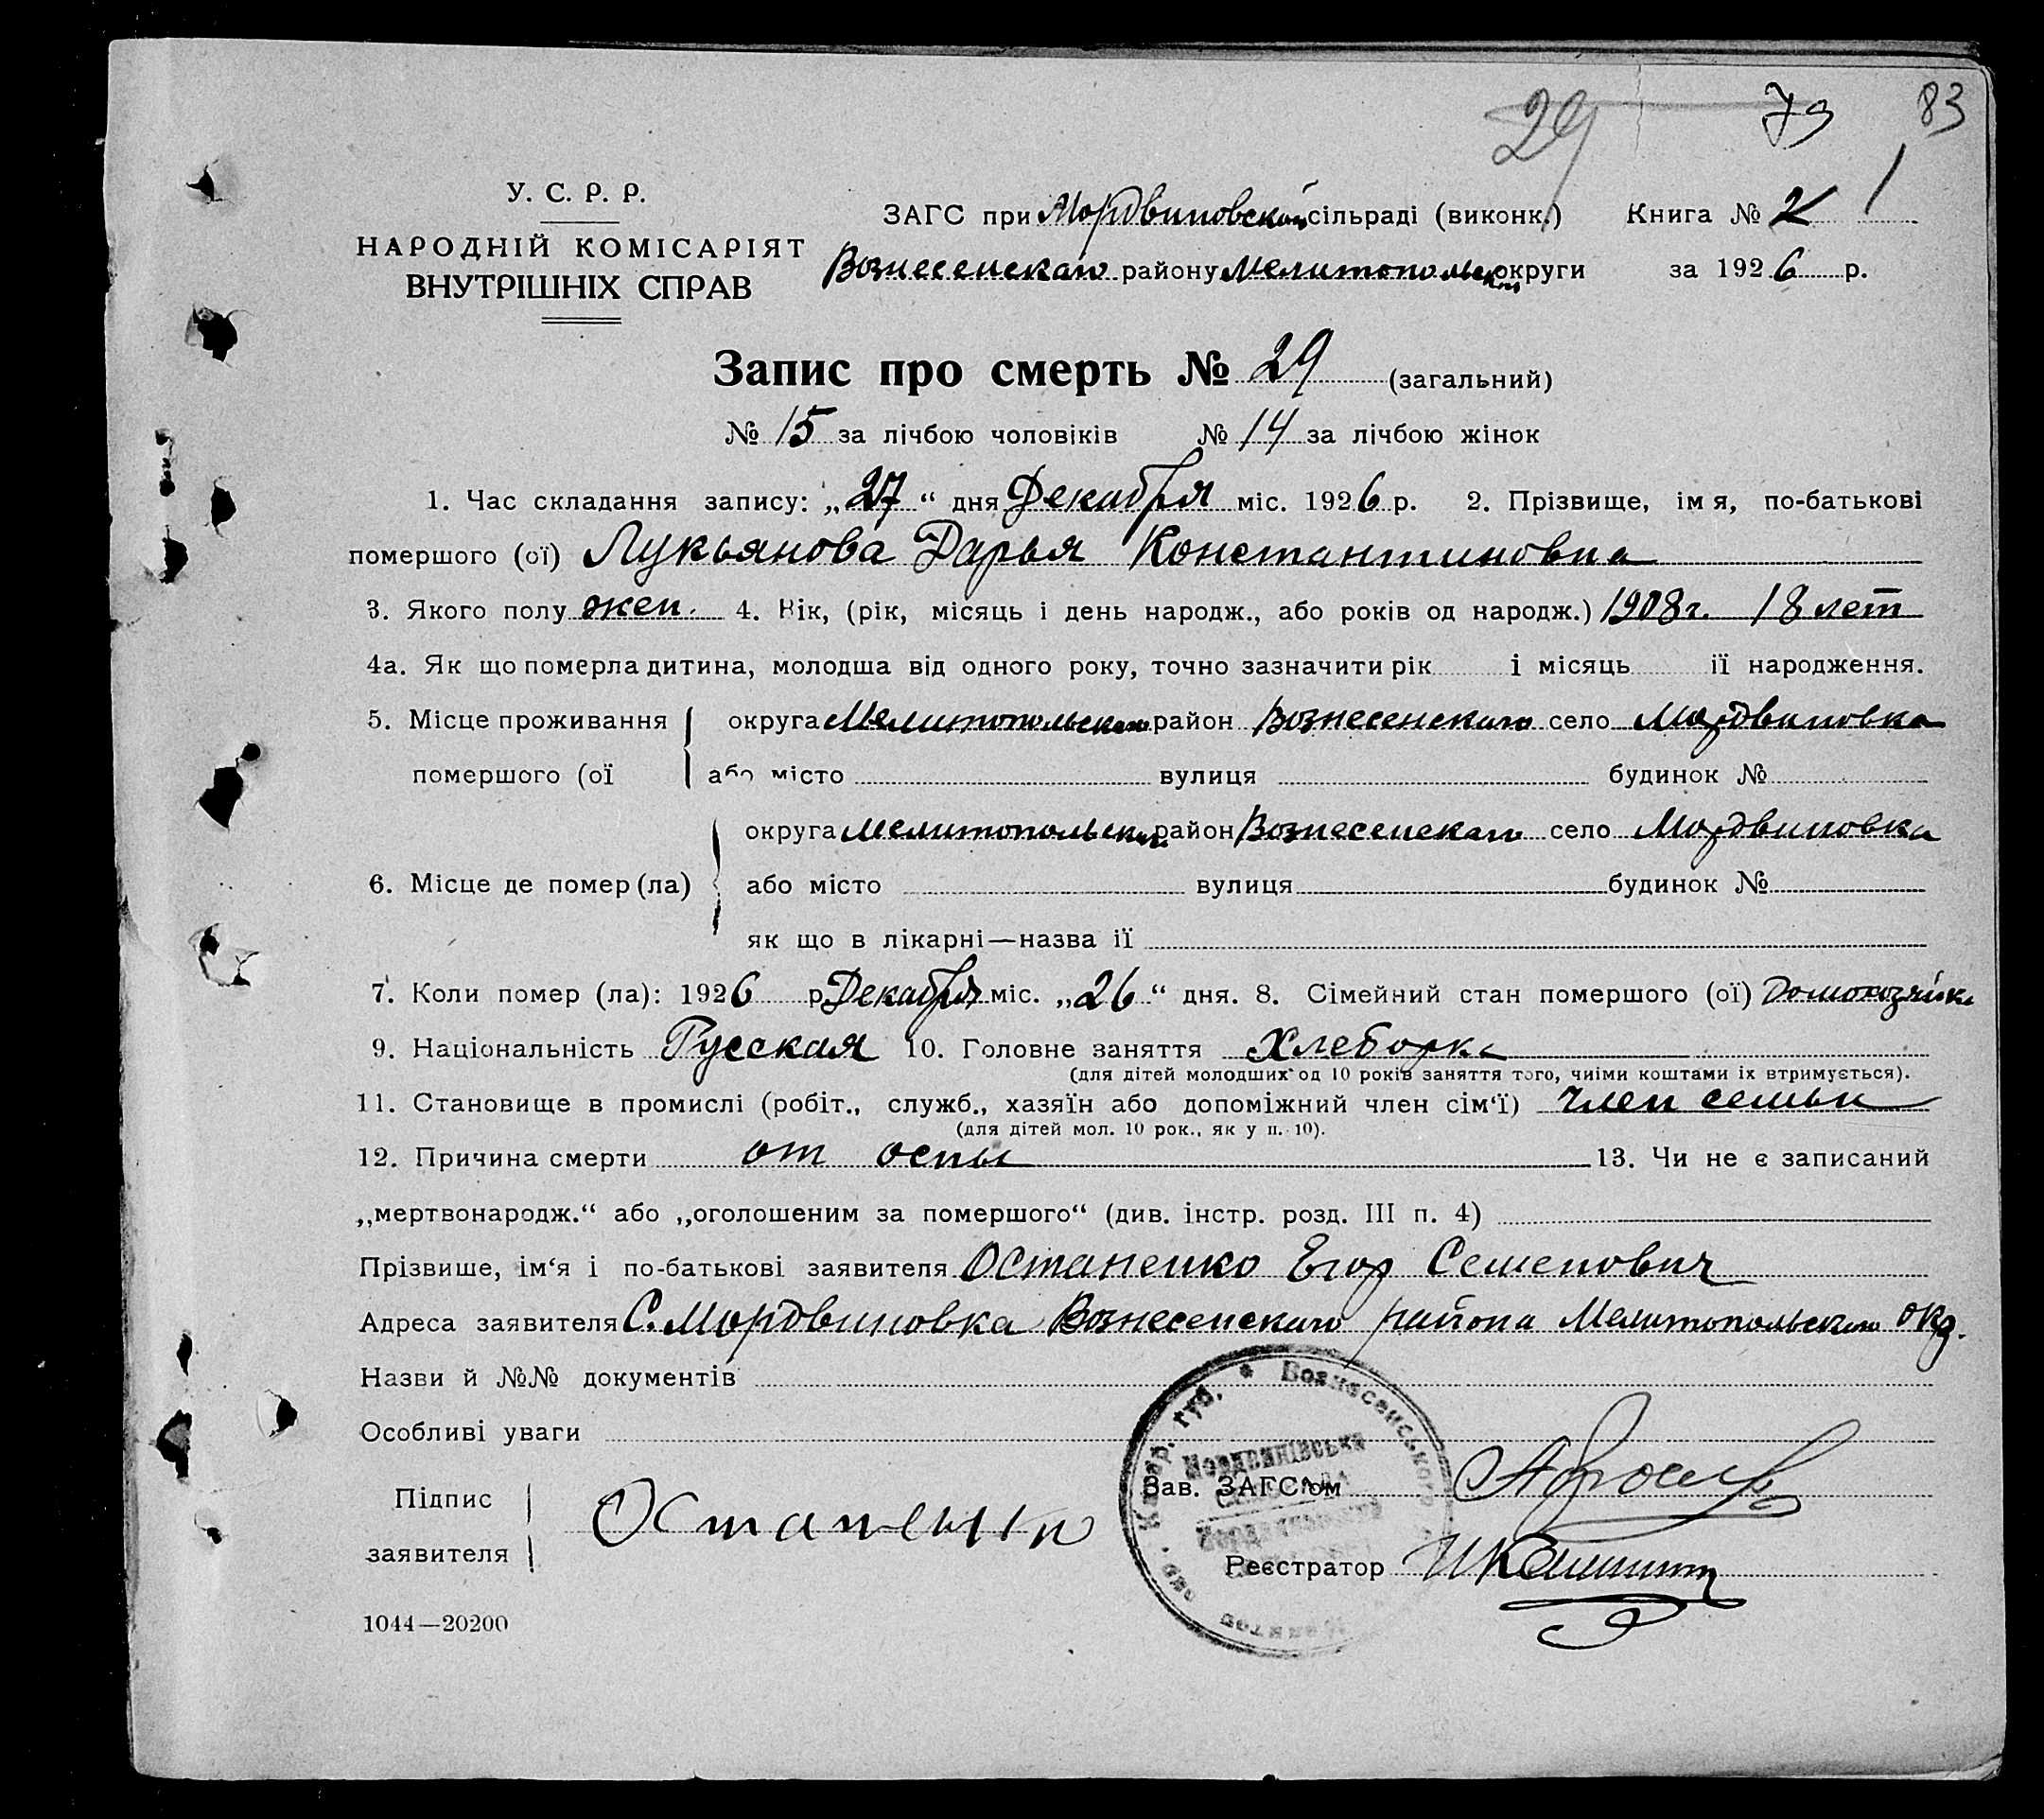 29 73 83
У. С. Р. Р.
НАРОДНІЙ КОМІСАРІЯТ
ВНУТРІШНІХ СПРАВ
ЗАГС при Мордвиновской сільраді (виконк.) Книга № 2 1
Вознесенского району Мелитопольской округи за 1926 р.
Запис про смерть № 29 (загальний)
№ 15 за лічбою чоловіків № 14 за лічбою жінок
1. Час складання запису: „27“ дня Декабря міс. 1926 р. 2. Прізвище, імя, по-батькові
помершого (ої) Лукьянова Дарья Константиновна
3. Якого полу жен. 4. Вік, (рік, місяць і день народж., або років од народж.) 1908 г. 18 лет
4а. Як що померла дитина, молодша від одного року, точно зазначити рік і місяць її народження.
5. Місце проживання округа Мелитопольского район Вознесенского село Мордвиновка
помершого (ої або місто вулиця будинок №
округа Мелитопольск. район Вознесенского село Мордвиновка
6. Місце де помер (ла) або місто вулиця будинок №
як що в лікарні—назва її
7. Коли помер (ла): 1926 р. Декабря міс. „26“ дня. 8. Сімейний стан помершого (ої) Домохозяйка
9. Національність Русская 10. Головне заняття Хлеборка
(для дітей молодших од 10 років заняття того, чиїми коштами їх втримується).
11. Становище в промислі (робіт., служб., хазяїн або допоміжний член сім‘ї) член семьи
(для дітей мол. 10 рок., як у п. 10).
12. Причина смерти от оспы 13. Чи не є записаний
„мертвонародж.“ або „оголошеним за помершого“ (див. інстр. розд. III п. 4)
Прізвише, ім‘я і по-батькові заявителя Останенко Егор Семенович
Адреса заявителя С. Мордвиновка Вознесенского района Мелитопольского окр.
Назви й №№ документів
Особливі уваги
Підпис
заявителя
Зав. ЗАГС‘ом
Реєстратор
Вознесенського
1044—20200